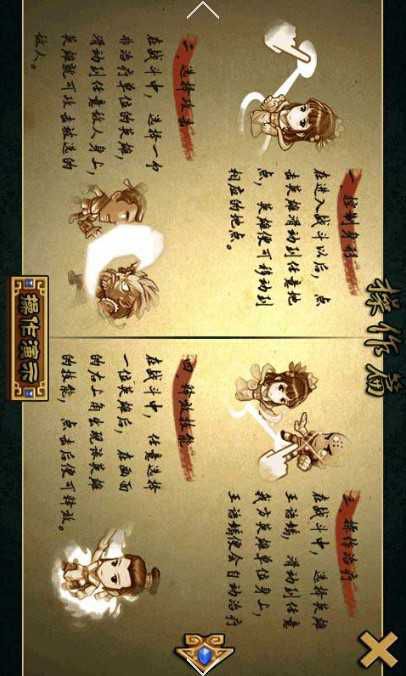 操作篇
一、控制身移
在进入战斗以后，点
击英雄滑动到任意地
点，英雄便可移动到
相应的地点。
二、选择攻击
在战斗中，选择一
治疗单位的英雄，
滑动到任意敌人身上，
英雄就可攻击被选的
敌人。
三、操作治疗
在战斗中，选择英雄
王语嫣，滑动到任意
我方英雄单位身上，
王语嫣便会自动治疗
四、释放技能
在战斗中，任意选择
一位英雄后，在画面
的右上角出现该英雄
的技能，点击后便可释放。
操作演示